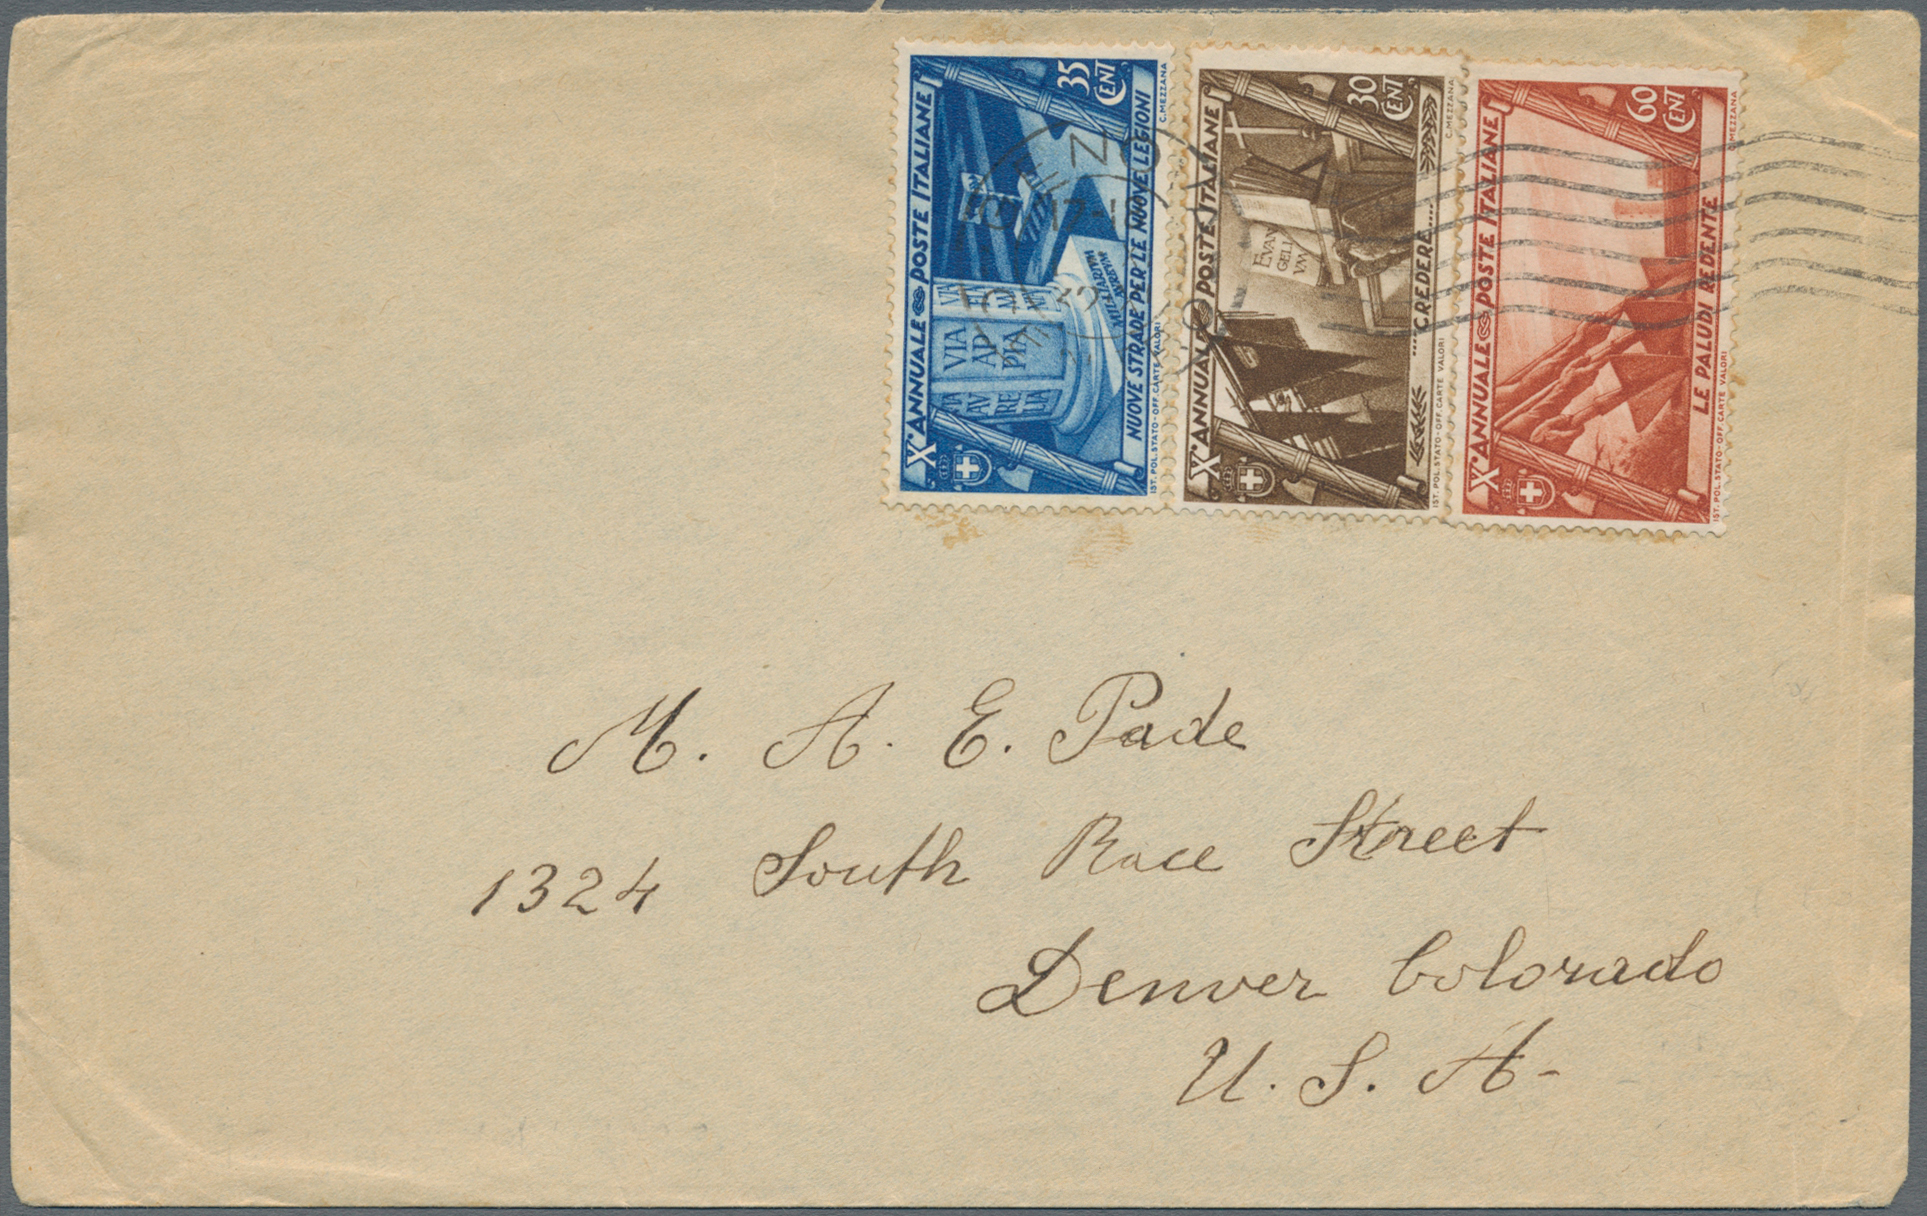 35 CENT
X° ANNUALE POSTE ITALIANE
NUOVE STRADE PER LE NUOVE LEGIONI
MILIARIVM AVREVM
VIA
AP
PIA
IST. POL. STATO - OFF. CARTE VALORI
C. MEZZANA
30 CENT
X° ANNUALE POSTE ITALIANE
EVAN
GELI
VM
....CREDERE....
IST. POL. STATO - OFF. CARTE VALORI
C. MEZZANA
60 CENT
X° ANNUALE POSTE ITALIANE
LE PALUDI REDENTE
IST. POL. STATO - OFF. CARTE VALORI
MEZZANA
M. A. E. Pade
1324 South Race Street
Denver Colorado
U. S. A-